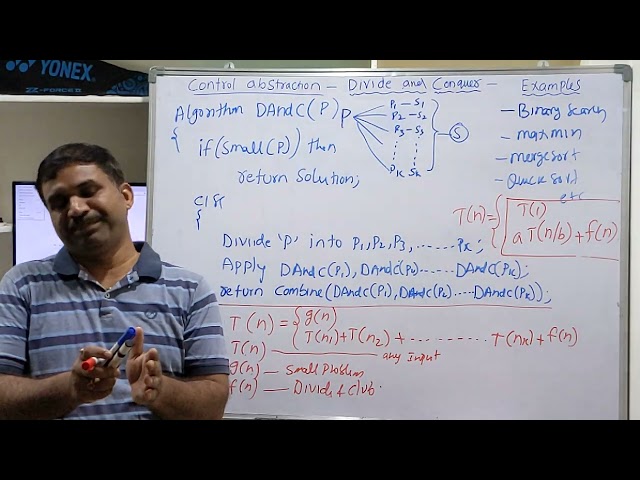 YONEX
Z-FORCE II
Control abstraction — Divide and Conquer — Examples
Algorithm DAndC(P)
{
if(small(P)) then
return solution;
else
{
Divide 'P' into P1, P2, P3, ...... Pk;
Apply DAndC(P1), DAndC(P2)......DAndC(Pk);
return Combine(DAndC(P1), DAndC(P2)....DAndC(Pk));
P
P1 — S1
P2 — S2
P3 — S3
Pk Sk
S
— Binary Search
— maxmin
— mergesort
— Quick sort
etc
T(n) = { T(1)
a T(n/b) + f(n)
T(n) = { g(n)
T(n1) + T(n2) + ........... T(nk) + f(n)
T(n) — any input
g(n) — small problem
f(n) — Divide & Club.